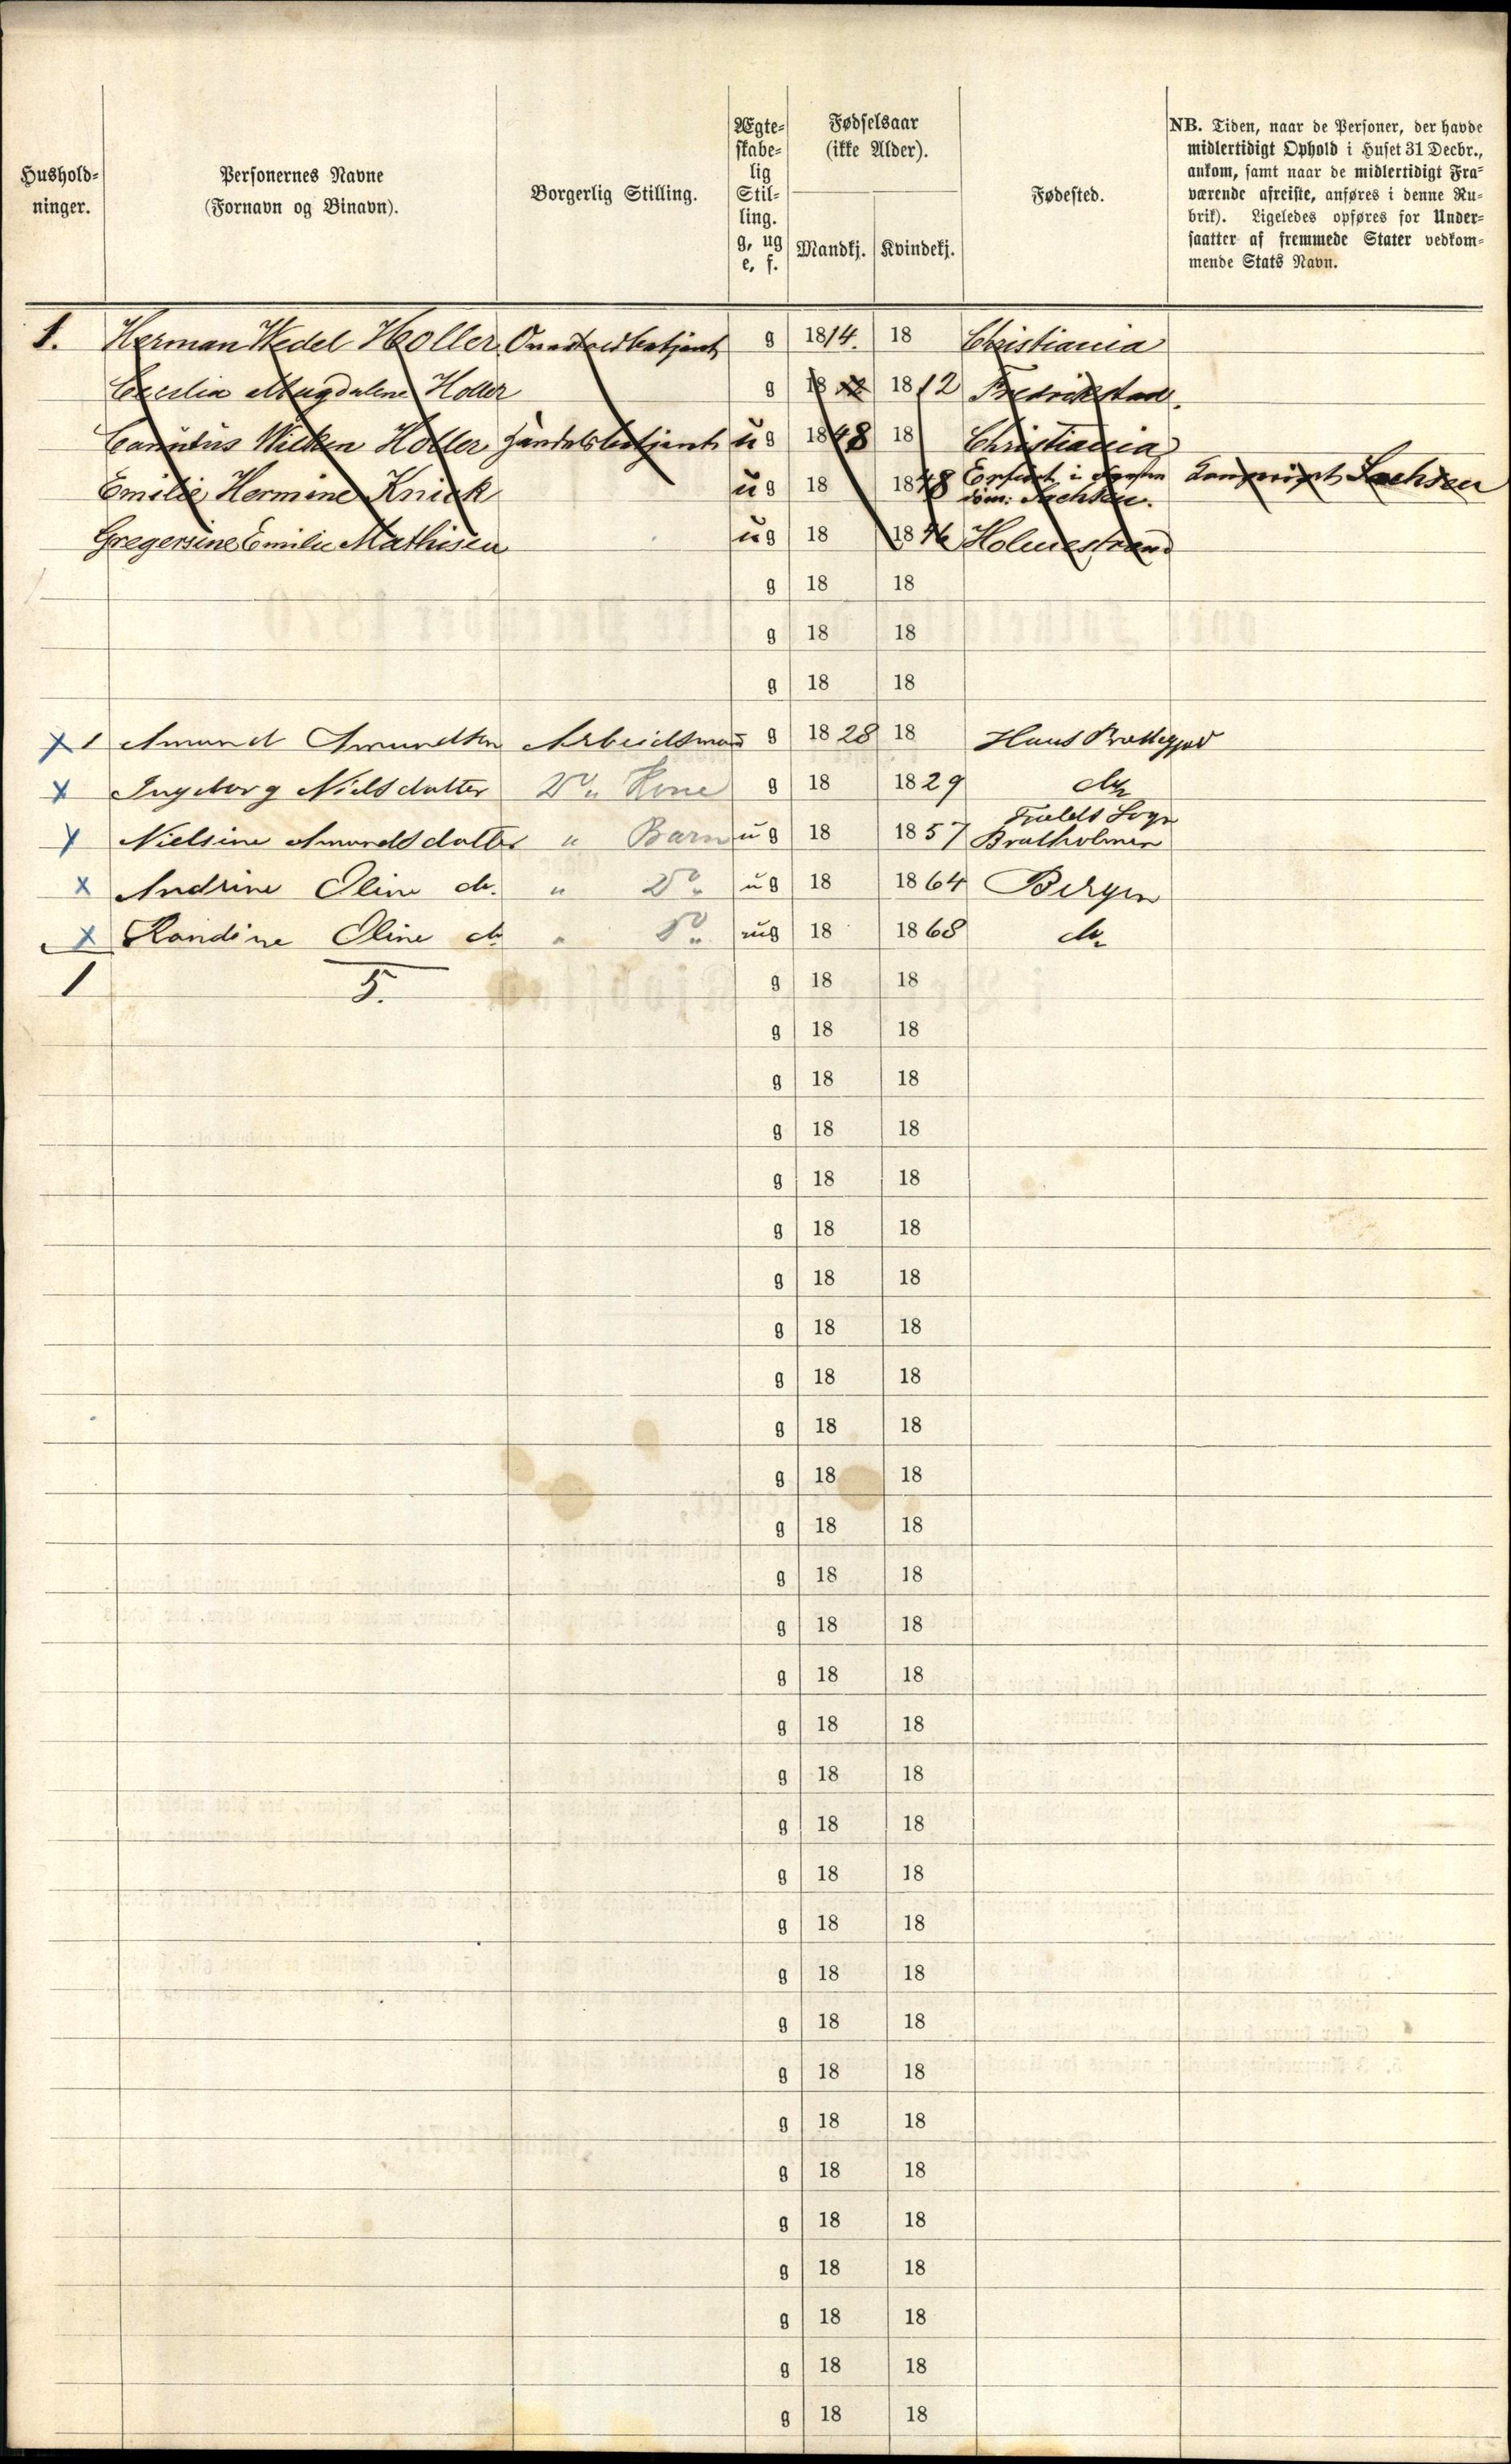 Hushold-
ninger.
Personernes Navne
(Fornavn og Binavn).
Borgerlig Stilling.
Ægte-
skabe-
lig
Stil-
ling.
g, ug
e, f.
Fødselsaar
(ikke Alder).
Mandkj. Kvindekj.
Fødested.
NB. Tiden, naar de Personer, der havde
midlertidigt Ophold i Huset 31 Decbr.,
ankom, samt naar de midlertidigt Fra-
værende afreiste, anføres i denne Ru-
brik). Ligeledes opføres for Under-
saatter af fremmede Stater vedkom-
mende Stats Navn.
1. Herman Wedel Holler g 1814. 18 Christiania
Cecilia Magdalene Holler g 18 1812 Fredrikstad.
Wilken Holler Handelsbetjent ug 1848 18 Christiania
Emilie Hermine Knick ug 18 1848 Erfurt i Sachsen
Sachsen.
Gregersine Emilie Mathisen ug 18 1846 Holmestrand
g 18 18
g 18 18
g 18 18
x 1 Amund Amundsen Arbeidsmand g 18 28 18 Haus
x Ingeborg Nielsdatter Do " Kone g 18 1829 do
x Nielsine Amundsdatter " Barn ug 18 1857 Fjelds Sogn
Bratholmen
x Andrine Oline do. " Do " ug 18 1864 Bergen
x Randine Oline do " Do " ug 18 1868 do
1 5. g 18 18
g 18 18
g 18 18
g 18 18
g 18 18
g 18 18
g 18 18
g 18 18
g 18 18
g 18 18
g 18 18
g 18 18
g 18 18
g 18 18
g 18 18
g 18 18
g 18 18
g 18 18
g 18 18
g 18 18
g 18 18
g 18 18
g 18 18
g 18 18
g 18 18
g 18 18
g 18 18
g 18 18
g 18 18
g 18 18